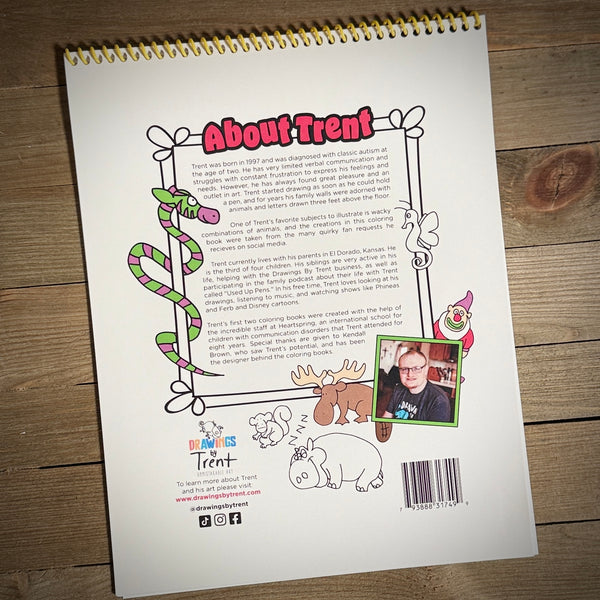 About Trent
Trent was born in 1997 and was diagnosed with classic autism at
the age of two. He has very limited verbal communication and
struggles with constant frustration to express his feelings and
needs. However, he has always found great pleasure and an
outlet in art. Trent started drawing as soon as he could hold
a pen, and for years his family walls were adorned with
animals and letters drawn three feet above the floor.
One of Trent's favorite subjects to illustrate is wacky
combinations of animals, and the creations in this coloring
book were taken from the many quirky fan requests he
recieves on social media.
Trent currently lives with his parents in El Dorado, Kansas. He
is the third of four children. His siblings are very active in his
life, helping with the Drawings By Trent business, as well as
participating in the family podcast about their life with Trent
called "Used Up Pens." In his free time, Trent loves looking at his
drawings, listening to music, and watching shows like Phineas
and Ferb and Disney cartoons.
Trent's first two coloring books were created with the help of
the incredible staff at Heartspring, an international school for
children with communication disorders that Trent attended for
eight years. Special thanks are given to Kendall
Brown, who saw Trent's potential, and has been
the designer behind the coloring books.
ZZZZ
DRAWINGS
by
Trent
UNMISTAKABLE ART
To learn more about Trent
and his art please visit:
www.drawingsbytrent.com
@drawingsbytrent
7 93888 31749 9